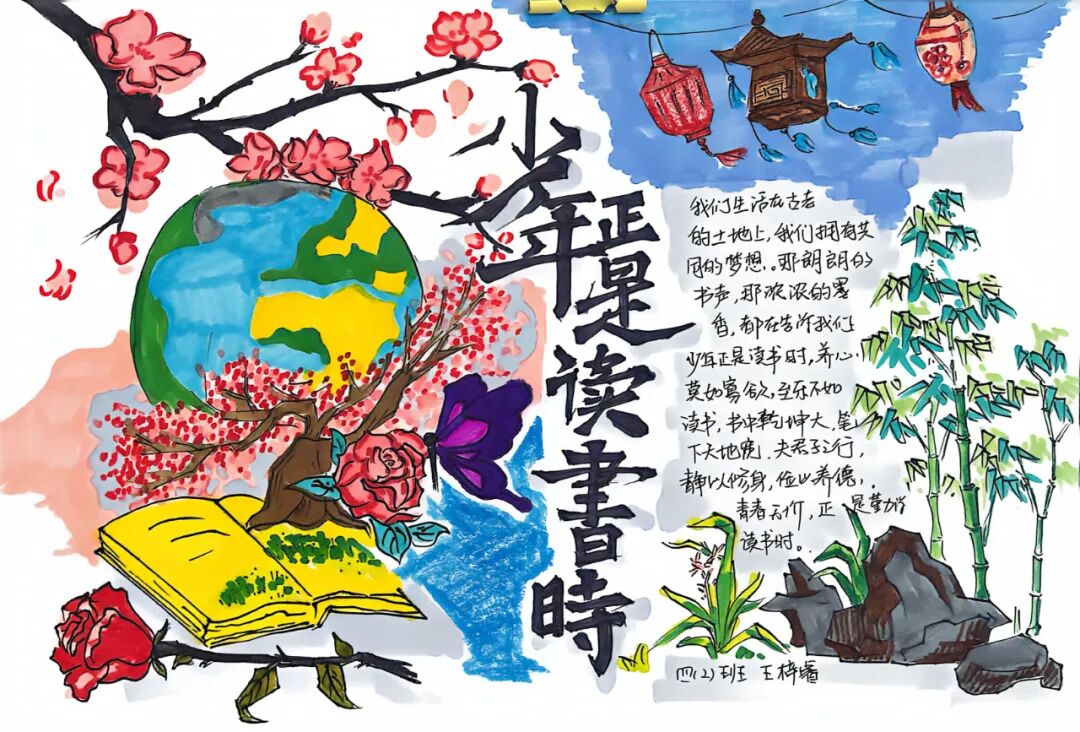 少年正是读書時
我们生活在古老
的土地上，我们拥有共
同的梦想..那朗朗的
书声，那浓浓的墨
香，都在告诉我们
少年正是读书时，养心
莫如寡欲，至乐不如
读书，书中乾坤大，笔
下天地宽，夫君子之行，
静以修身，俭以养德，.
青春无价，正是勤学
读书时。
四(2)班 王梓